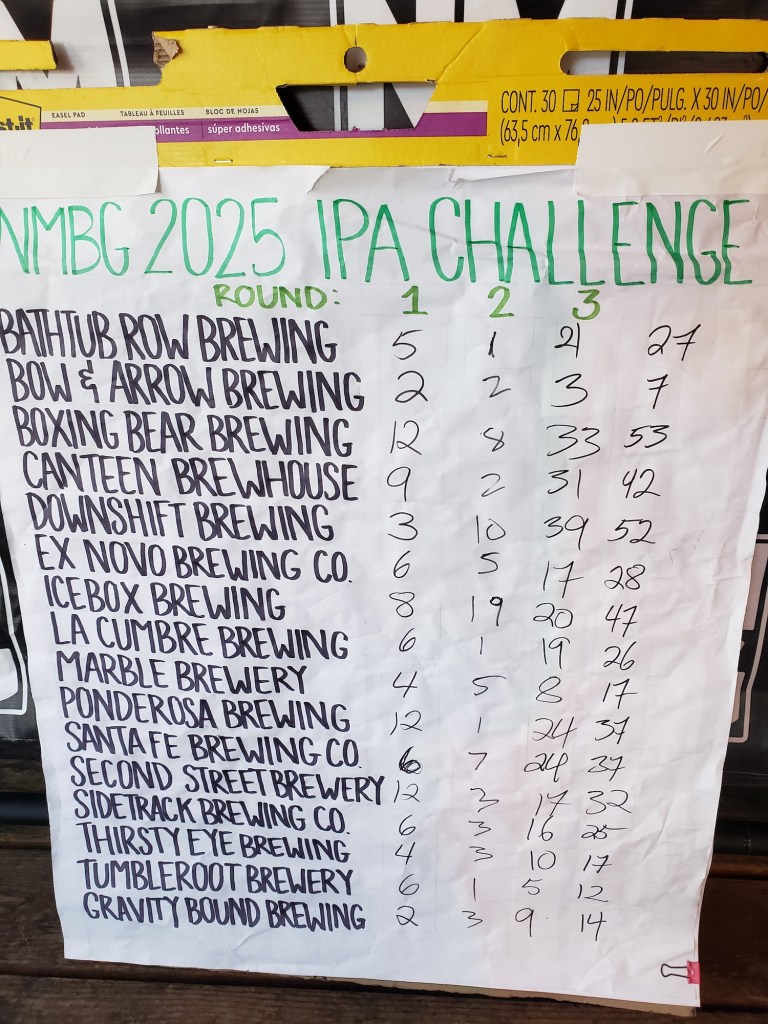 EASEL PAD TABLEAU À FEUILLES BLOC DE HOJAS
st-it ollantes súper adhesivas
CONT. 30 25 IN/PO/PULG. X 30 IN/PO/
(63,5 cm x 76,
NMBG 2025 IPA CHALLENGE
ROUND: 1 2 3
BATHTUB ROW BREWING 5 1 21 27
BOW & ARROW BREWING 2 2 3 7
BOXING BEAR BREWING 12 8 33 53
CANTEEN BREWHOUSE 9 2 31 42
DOWNSHIFT BREWING 3 10 39 52
EX NOVO BREWING CO. 6 5 17 28
ICEBOX BREWING 8 19 20 47
LA CUMBRE BREWING 6 1 19 26
MARBLE BREWERY 4 5 8 17
PONDEROSA BREWING 12 1 24 37
SANTA FE BREWING CO. 6 7 24 37
SECOND STREET BREWERY 12 3 17 32
SIDETRACK BREWING CO. 6 3 16 25
THIRSTY EYE BREWING 4 3 10 17
TUMBLEROOT BREWERY 6 1 5 12
GRAVITY BOUND BREWING 2 3 9 14